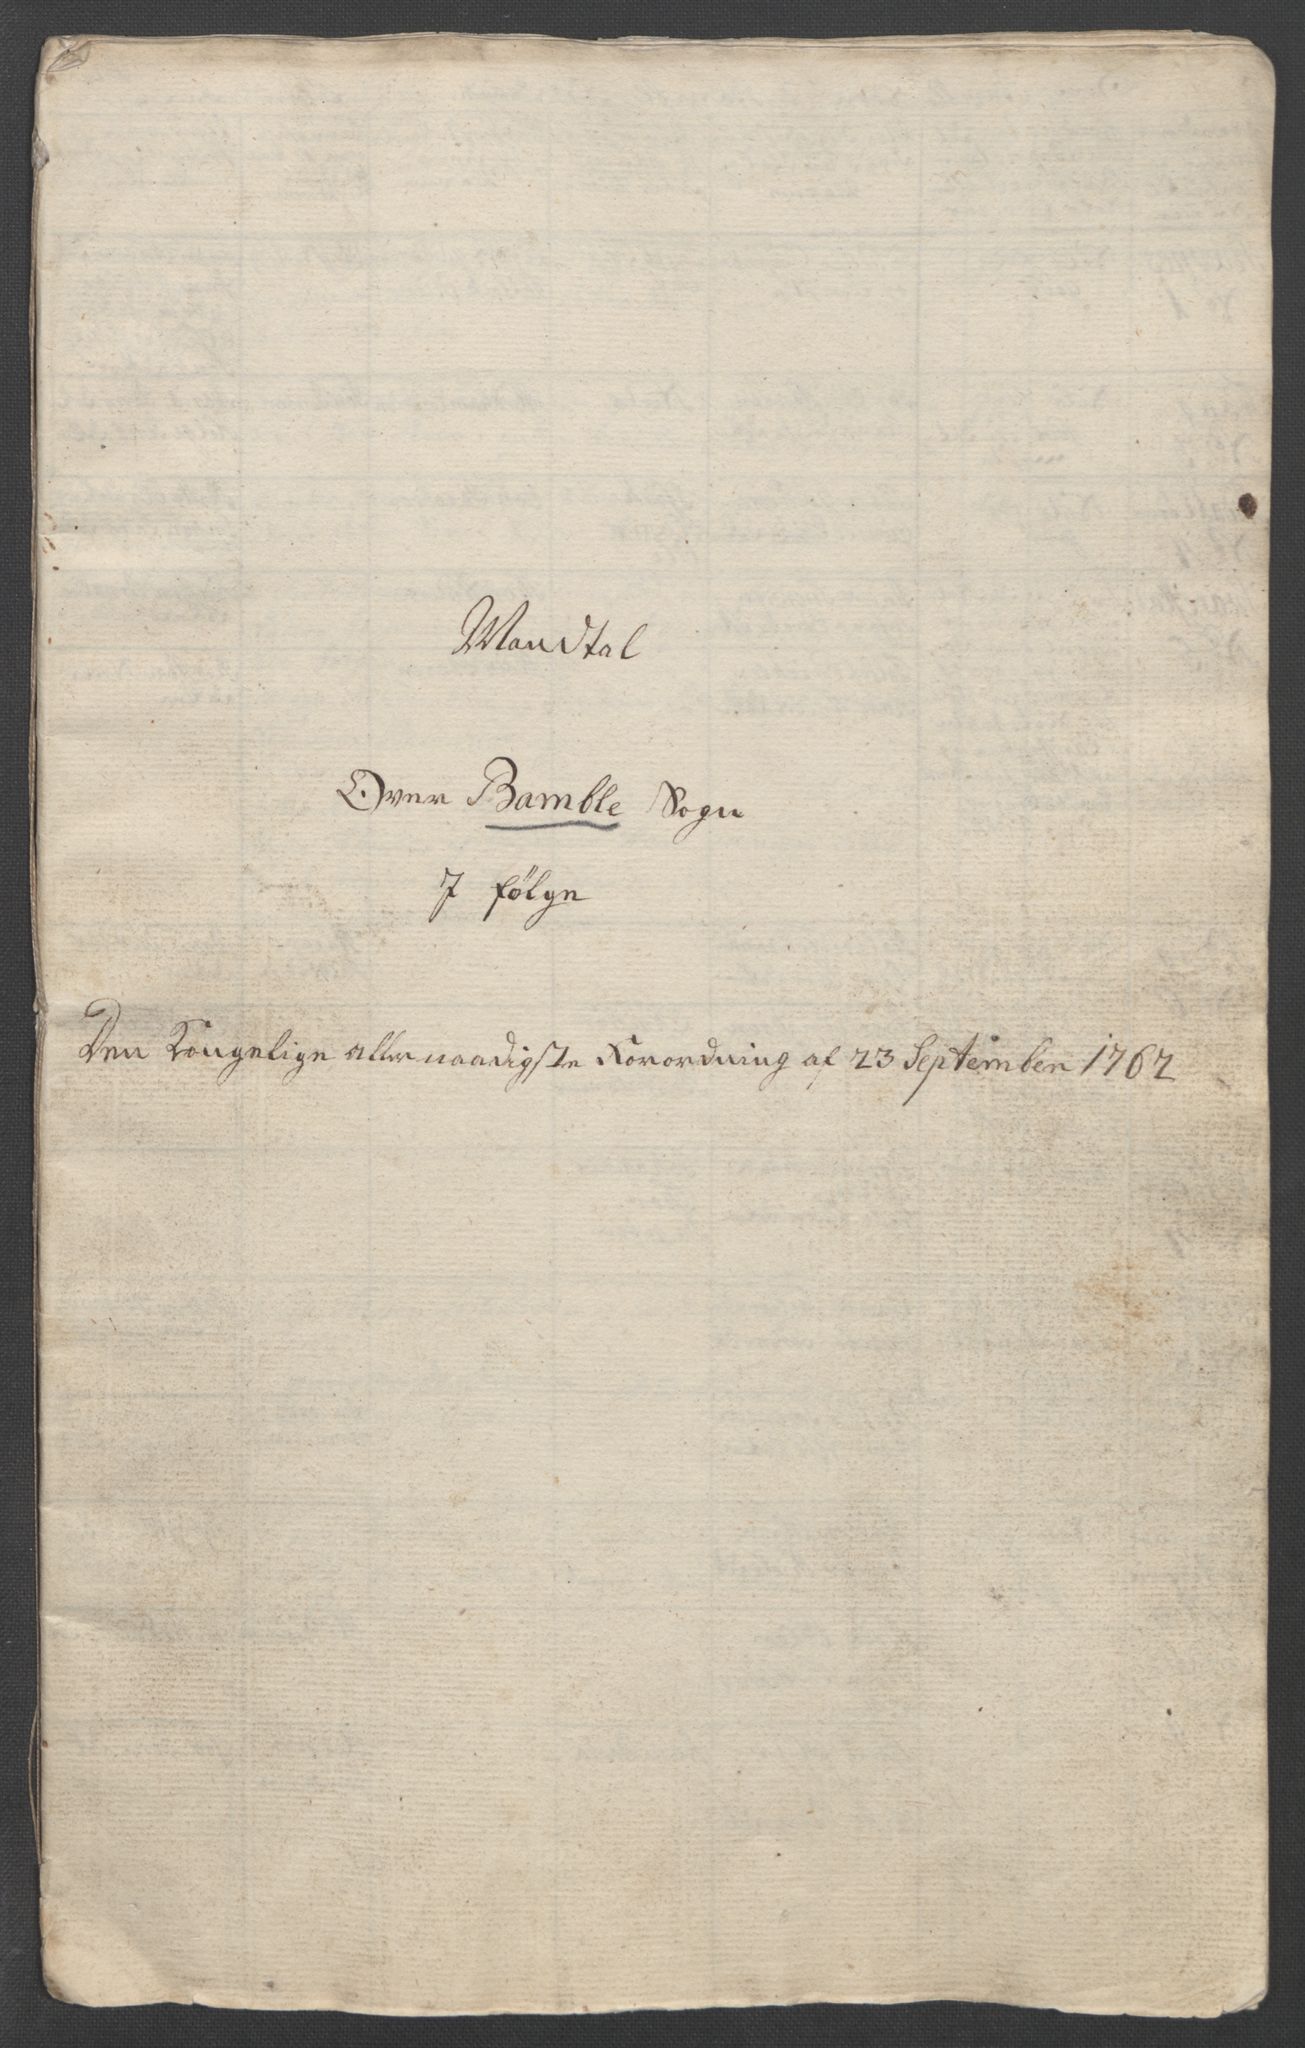 Mandtal
Over Bamble Sogn
J følge
Den Kongelige allernaadigste Forordning af 23 September 1762